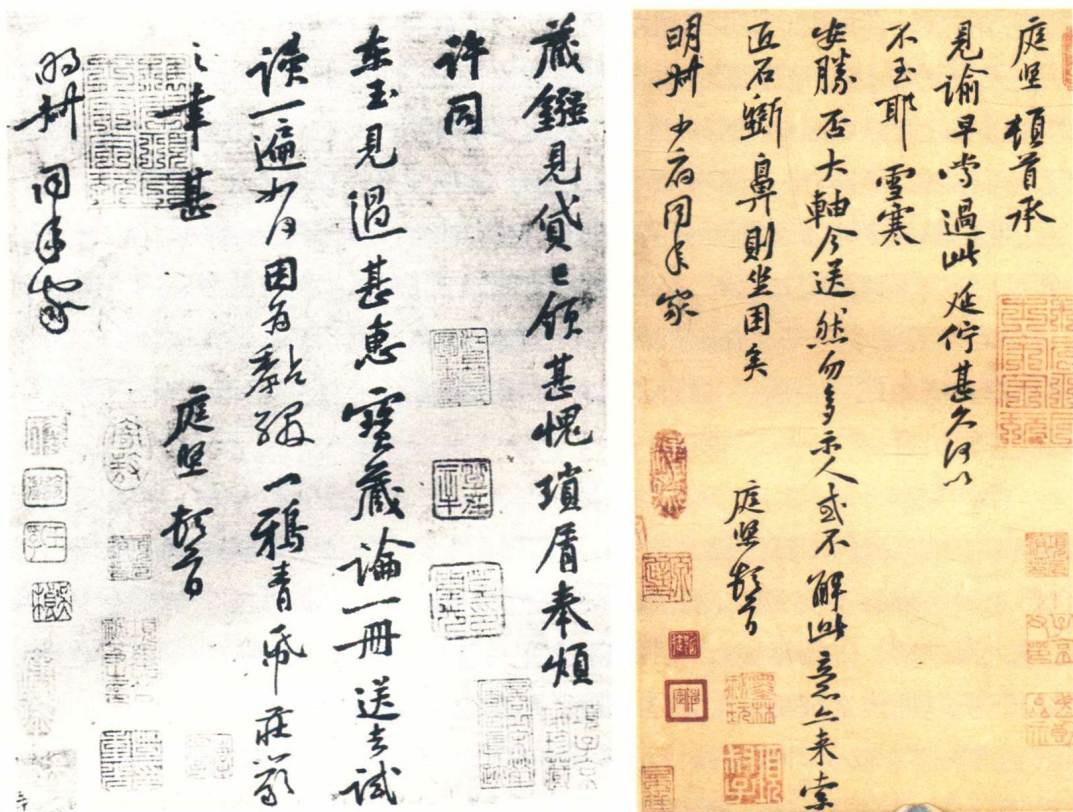 庭堅頓首承
見諭早嘗過此延佇甚久何以
不至耶雪寒
安勝否大軸今送然勿多示人或不解此意亦來索
匠石斵鼻則坐困矣 庭堅頓首
明叔少府同年家
藏鏹見貸已領甚愧瑣屑奉煩
許同
東玉見過甚惠寶藏論一冊送去試
讀一遍如何因爲黏綴一鴉青紙莊嚴
之幸甚 庭堅頓首
明叔同年家